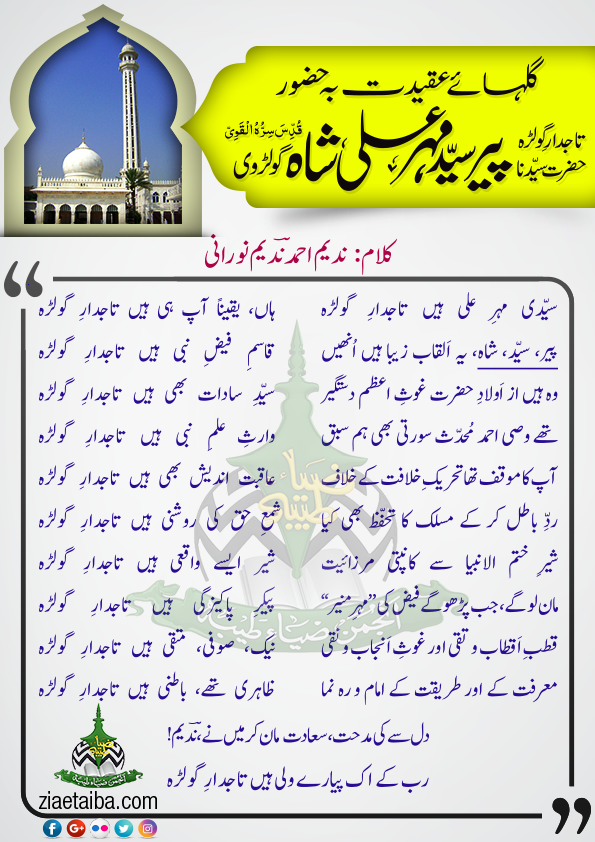 گلہائے عقیدت بہ حضور
تاجدارِ گولڑہ
حضرت سیّدنا
پیر سیّد مہر علی شاہ گولڑوی
قُدِّسَ سِرُّہُ الْقَوِیْ
کلام: ندیم احمد ندؔیم نورانی
سیّدی مہرِ علی ہیں تاجدارِ گولڑہ ہاں، یقیناً آپ ہی ہیں تاجدارِ گولڑہ
پیر، سیّد، شاہ، یہ اَلقاب زیبا ہیں اُنھیں قاسمِ فیضِ نبی ہیں تاجدارِ گولڑہ
وہ ہیں از اَولادِ حضرت غوثِ اعظم دستگیر سیّدِ سادات بھی ہیں تاجدارِ گولڑہ
تھے وصی احمد مُحدّث سورتی بھی ہم سبق وارثِ علمِ نبی ہیں تاجدارِ گولڑہ
آپ کا موقف تھا تحریکِ خلافت کے خلاف عاقبت اندیش بھی ہیں تاجدارِ گولڑہ
ردِّ باطل کر کے مسلک کا تحفّظ بھی کیا شمعِ حق کی روشنی ہیں تاجدارِ گولڑہ
شیرِ ختم الانبیا سے کانپتی مرزائیت شیر ایسے واقعی ہیں تاجدارِ گولڑہ
مان لوگے، جب پڑھوگے فیض کی ”مہرِ منیر“ پیکرِ پاکیزگی ہیں تاجدارِ گولڑہ
قطبِ اَقطاب و تقی اور غوثِ اَنجاب و نقی نیک، صوفی، متقی ہیں تاجدارِ گولڑہ
معرفت کے اور طریقت کے امام و رہ نما ظاہری تھے، باطنی ہیں تاجدارِ گولڑہ
دل سے کی مدحت، سعادت مان کر میں نے، ندؔیم!
رب کے اک پیارے ولی ہیں تاجدارِ گولڑہ
ضیاءِ طیبہ
انجمن ضیاءِ طیبہ
ziaetaiba.com